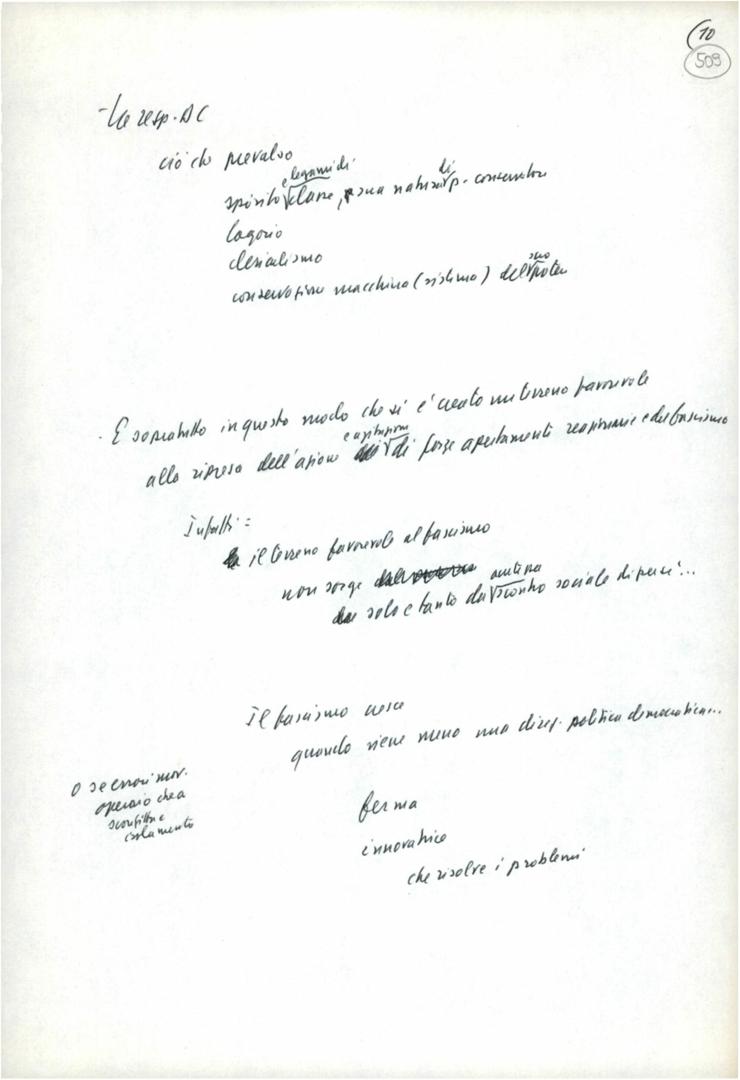 (10
509
- Le resp. DC
ciò che prevalso
e legami di
spirito classe, sua natura di p. conservatore
logorio
clericalismo
conservazione macchina (sistema) del suo potere
- E sopratutto in questo modo che si è creato un terreno favorevole
alla ripresa dell'azione e agitazione di forze apertamente reazionarie e del fascismo
Infatti:
il terreno favorevole al fascismo
non sorge
solo e tanto da scontro sociale di per sé...
Il fascismo cresce
quando viene meno una direz. politica democratica...
o se errori mov.
operaio che a
sconfitta e
isolamento
ferma
innovatrice
che risolve i problemi